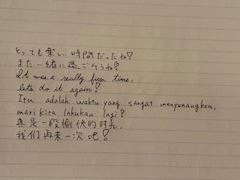 とっても楽しい時間だったね!
また一緒に過ごそうね!
It was a really fun time,
lets do it again!
Itu adalah waktu yang sangat menyenangkan,
mari kita lakukan lagi!
真是一段愉快的时光,
我们再来一次吧!